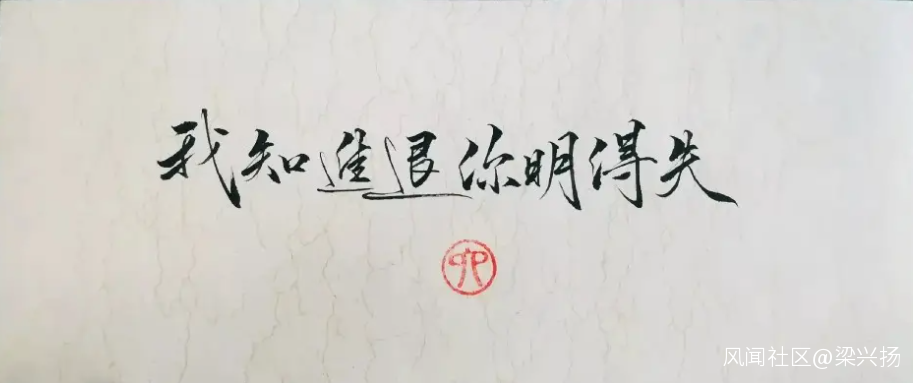 我知進退你明得失
风闻社区@梁兴扬